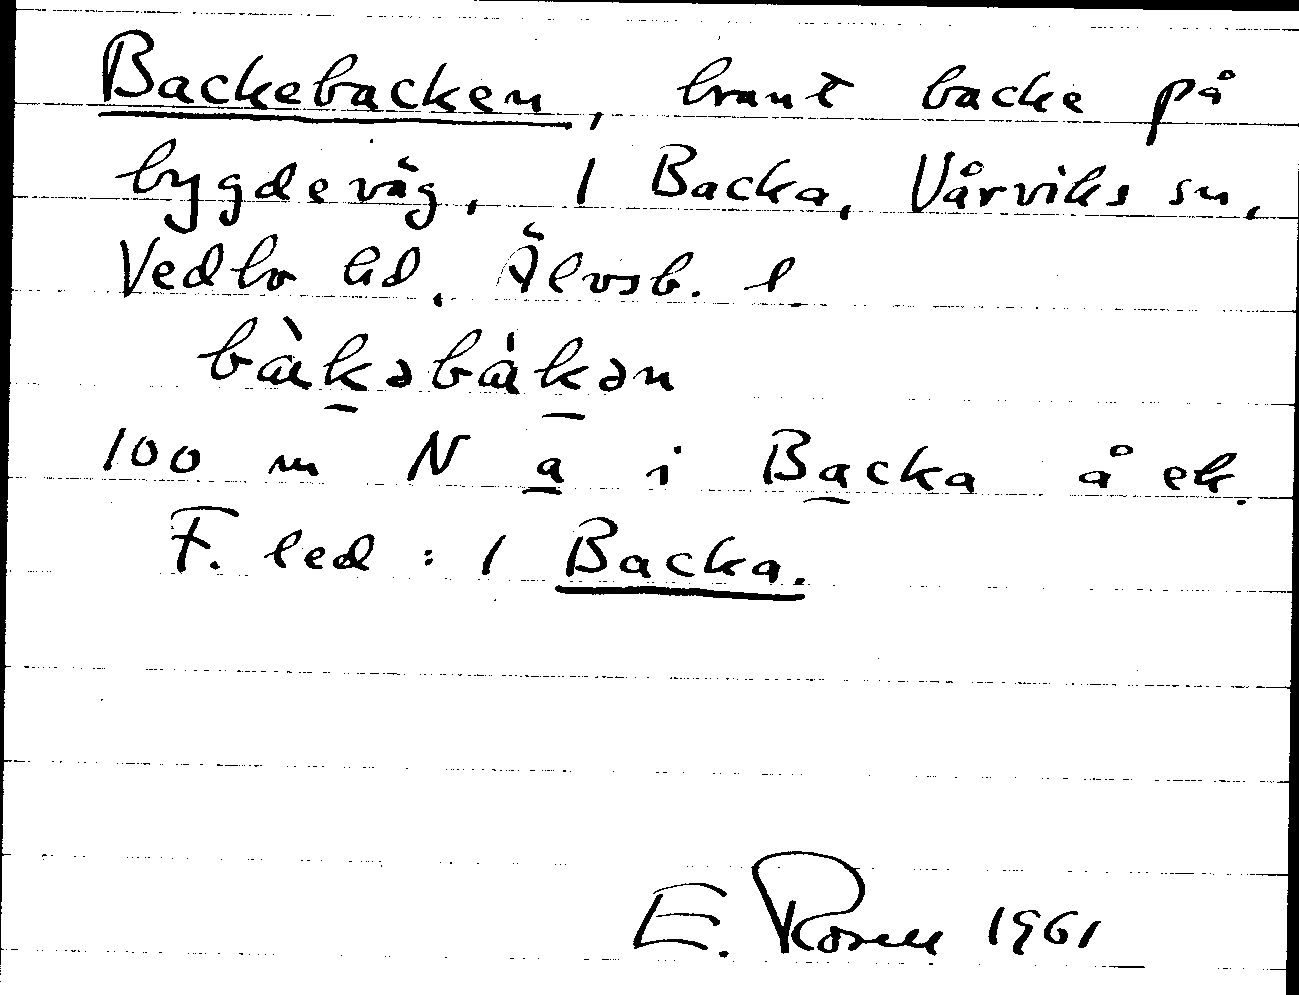 Backebacken, brant backe på
bygdeväg, 1 Backa, Vårviks sn,
Vedbo hd, Älvsb. l.
bàkəbákən
100 m N a i Backa å ek.
F. led: 1 Backa.
E. 1961